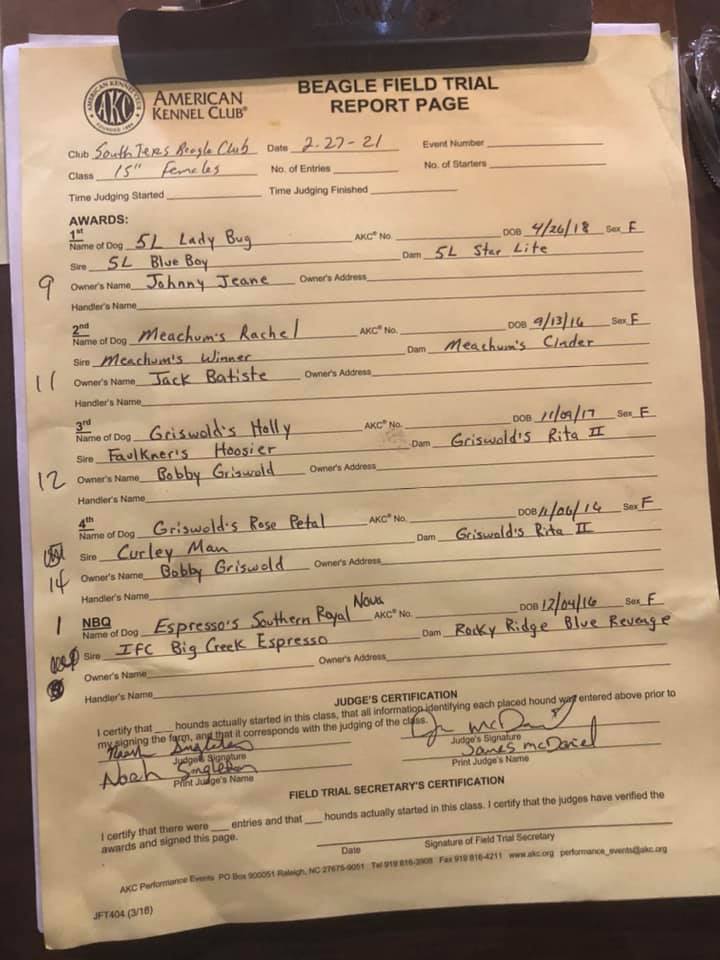 BEAGLE FIELD TRIAL
REPORT PAGE
AKC
AMERICAN KENNEL CLUB
FOUNDED 1884
AMERICAN
KENNEL CLUB®
Club South Texs Beagle Club Date 2-27-21 Event Number
Class 15" Females No. of Entries No. of Starters
Time Judging Started Time Judging Finished
AWARDS:
1st
Name of Dog 5L Lady Bug AKC® No. DOB 4/26/18 Sex F
Sire 5L Blue Boy Dam 5L Star Lite
9 Owner's Name Johnny Jeane Owner's Address
Handler's Name
2nd
Name of Dog Meachum's Rachel AKC® No. DOB 9/13/16 Sex F
Sire Meachum's Winner Dam Meachum's Cinder
11 Owner's Name Jack Batiste Owner's Address
Handler's Name
3rd
Name of Dog Griswold's Holly AKC® No. DOB 11/09/17 Sex F
Sire Faulkner's Hoosier Dam Griswold's Rita II
12 Owner's Name Bobby Griswold Owner's Address
Handler's Name
4th
Name of Dog Griswold's Rose Petal AKC® No. DOB 11/06/14 Sex F
Sire Curley Man Dam Griswold's Rita II
14 Owner's Name Bobby Griswold Owner's Address
Handler's Name
1 NBQ
Name of Dog Espresso's Southern Royal Nova AKC® No. DOB 12/04/16 Sex F
Sire IFC Big Creek Espresso Dam Rocky Ridge Blue Revenge
Owner's Name Owner's Address
Handler's Name
JUDGE'S CERTIFICATION
I certify that ___ hounds actually started in this class, that all information identifying each placed hound was entered above prior to
my signing the form, and that it corresponds with the judging of the class.
Noah Singleton McDaniel
Judge's Signature Judge's Signature
Noah Singleton James McDaniel
Print Judge's Name Print Judge's Name
FIELD TRIAL SECRETARY'S CERTIFICATION
I certify that there were ___ entries and that ___ hounds actually started in this class. I certify that the judges have verified the
awards and signed this page.
Date Signature of Field Trial Secretary
AKC Performance Events PO Box 900051 Raleigh, NC 27675-9051 Tel 919 816-3908 Fax 919 816-4211 www.akc.org performance_events@akc.org
JFT404 (3/16)